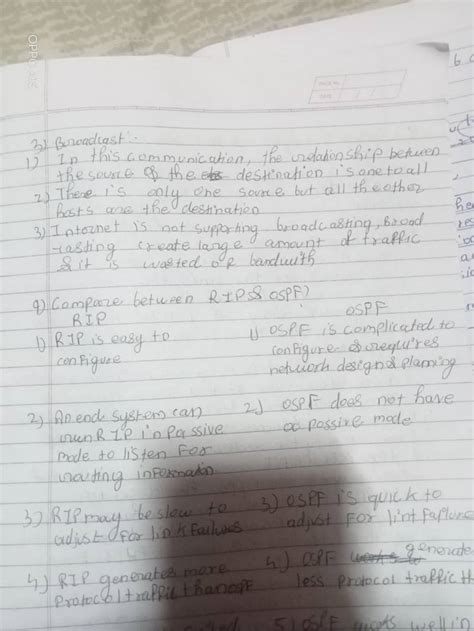 OPPO
PAGE No.
DATE
3) Broadcast :-
1) In this communication, the relationship between
the source & the destination is one to all
2) There is only one source but all the other
hosts are the destination
3) Internet is not supporting broadcasting, Broad
-casting create large amount of traffic
& it is wasted of bandwith
q) Compare between RIP & OSPF)
RIP
OSPF
1) RIP is easy to
configure
1) OSPF is complicated to
configure & requires
network design & planing
2) An end system can
run RIP in passive
mode to listen for
routing information
2) OSPF does not have
a passive mode
3) RIP may be slow to
adjust for link failures
3) OSPF is quick to
adjust for lint faplure
4) RIP generates more
Protocol traffic than OSPF
4) OSPF generate
less protocol traffic th
5) OSPF works well in